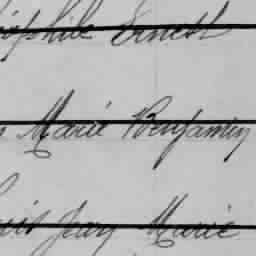 éophile Ernest
Marie Benjamin
Jean Marie